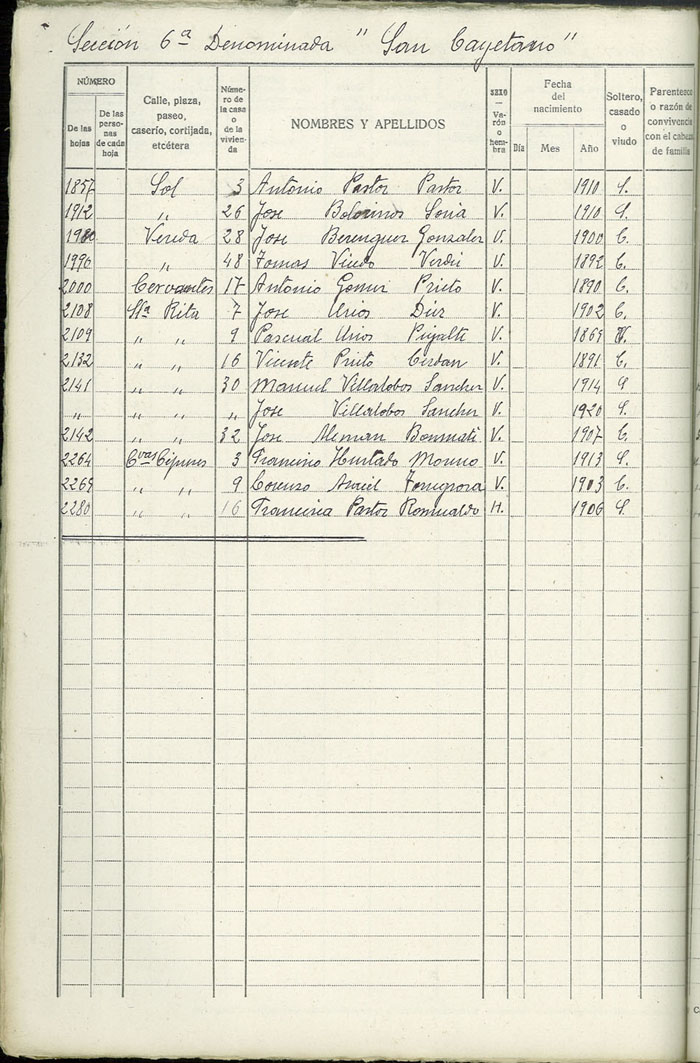 Sección 6ª Denominada "San Cayetano"
NÚMERO
De las hojas
De las personas de cada hoja
Calle, plaza, paseo, caserío, cortijada, etcétera
Número de la casa o de la vivienda
NOMBRES Y APELLIDOS
SEXO — Varón o hembra
Fecha del nacimiento
Día Mes Año
Soltero, casado o viudo
Parentesco o razón de convivencia con el cabeza de familia
1857 Sol 3 Antonio Pastor Pastor V. 1910 S.
1912 " 26 Jose Bolorinos Soria V. 1910 S.
1980 Vereda 28 Jose Berenguer Gonzalez V. 1900 C.
1990 " 48 Tomas Verdú V. 1892 C.
2000 Cervantes 17 Antonio Prieto V. 1890 C.
2108 Sta Rita 7 Jose Urios Díez V. 1902 C.
2109 " " 9 Pascual Urios V. 1869 V.
2132 " " 16 Vicente Prieto Cerdan V. 1891 C.
2141 " " 30 Manuel Villalobos Sanchez V. 1914 S
" " " " Jose Villalobos Sanchez V. 1920 S.
2142 " " 32 Jose Aleman Bonmati V. 1907 C.
2264 3 Francisco Hurtado Moreno V. 1913 S.
2269 " " 9 Lorenzo V. 1903 C.
2280 " " 16 Francisca Pastor Romualdo H. 1906 S.